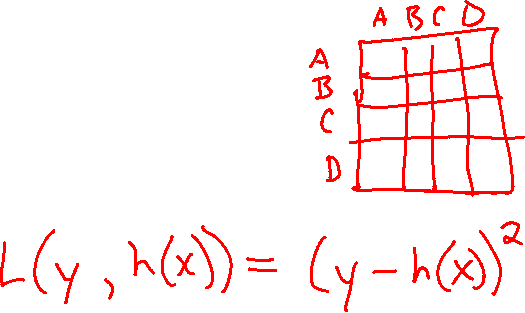 A B C D
A
B
C
D
L(y, h(x)) = (y - h(x))²